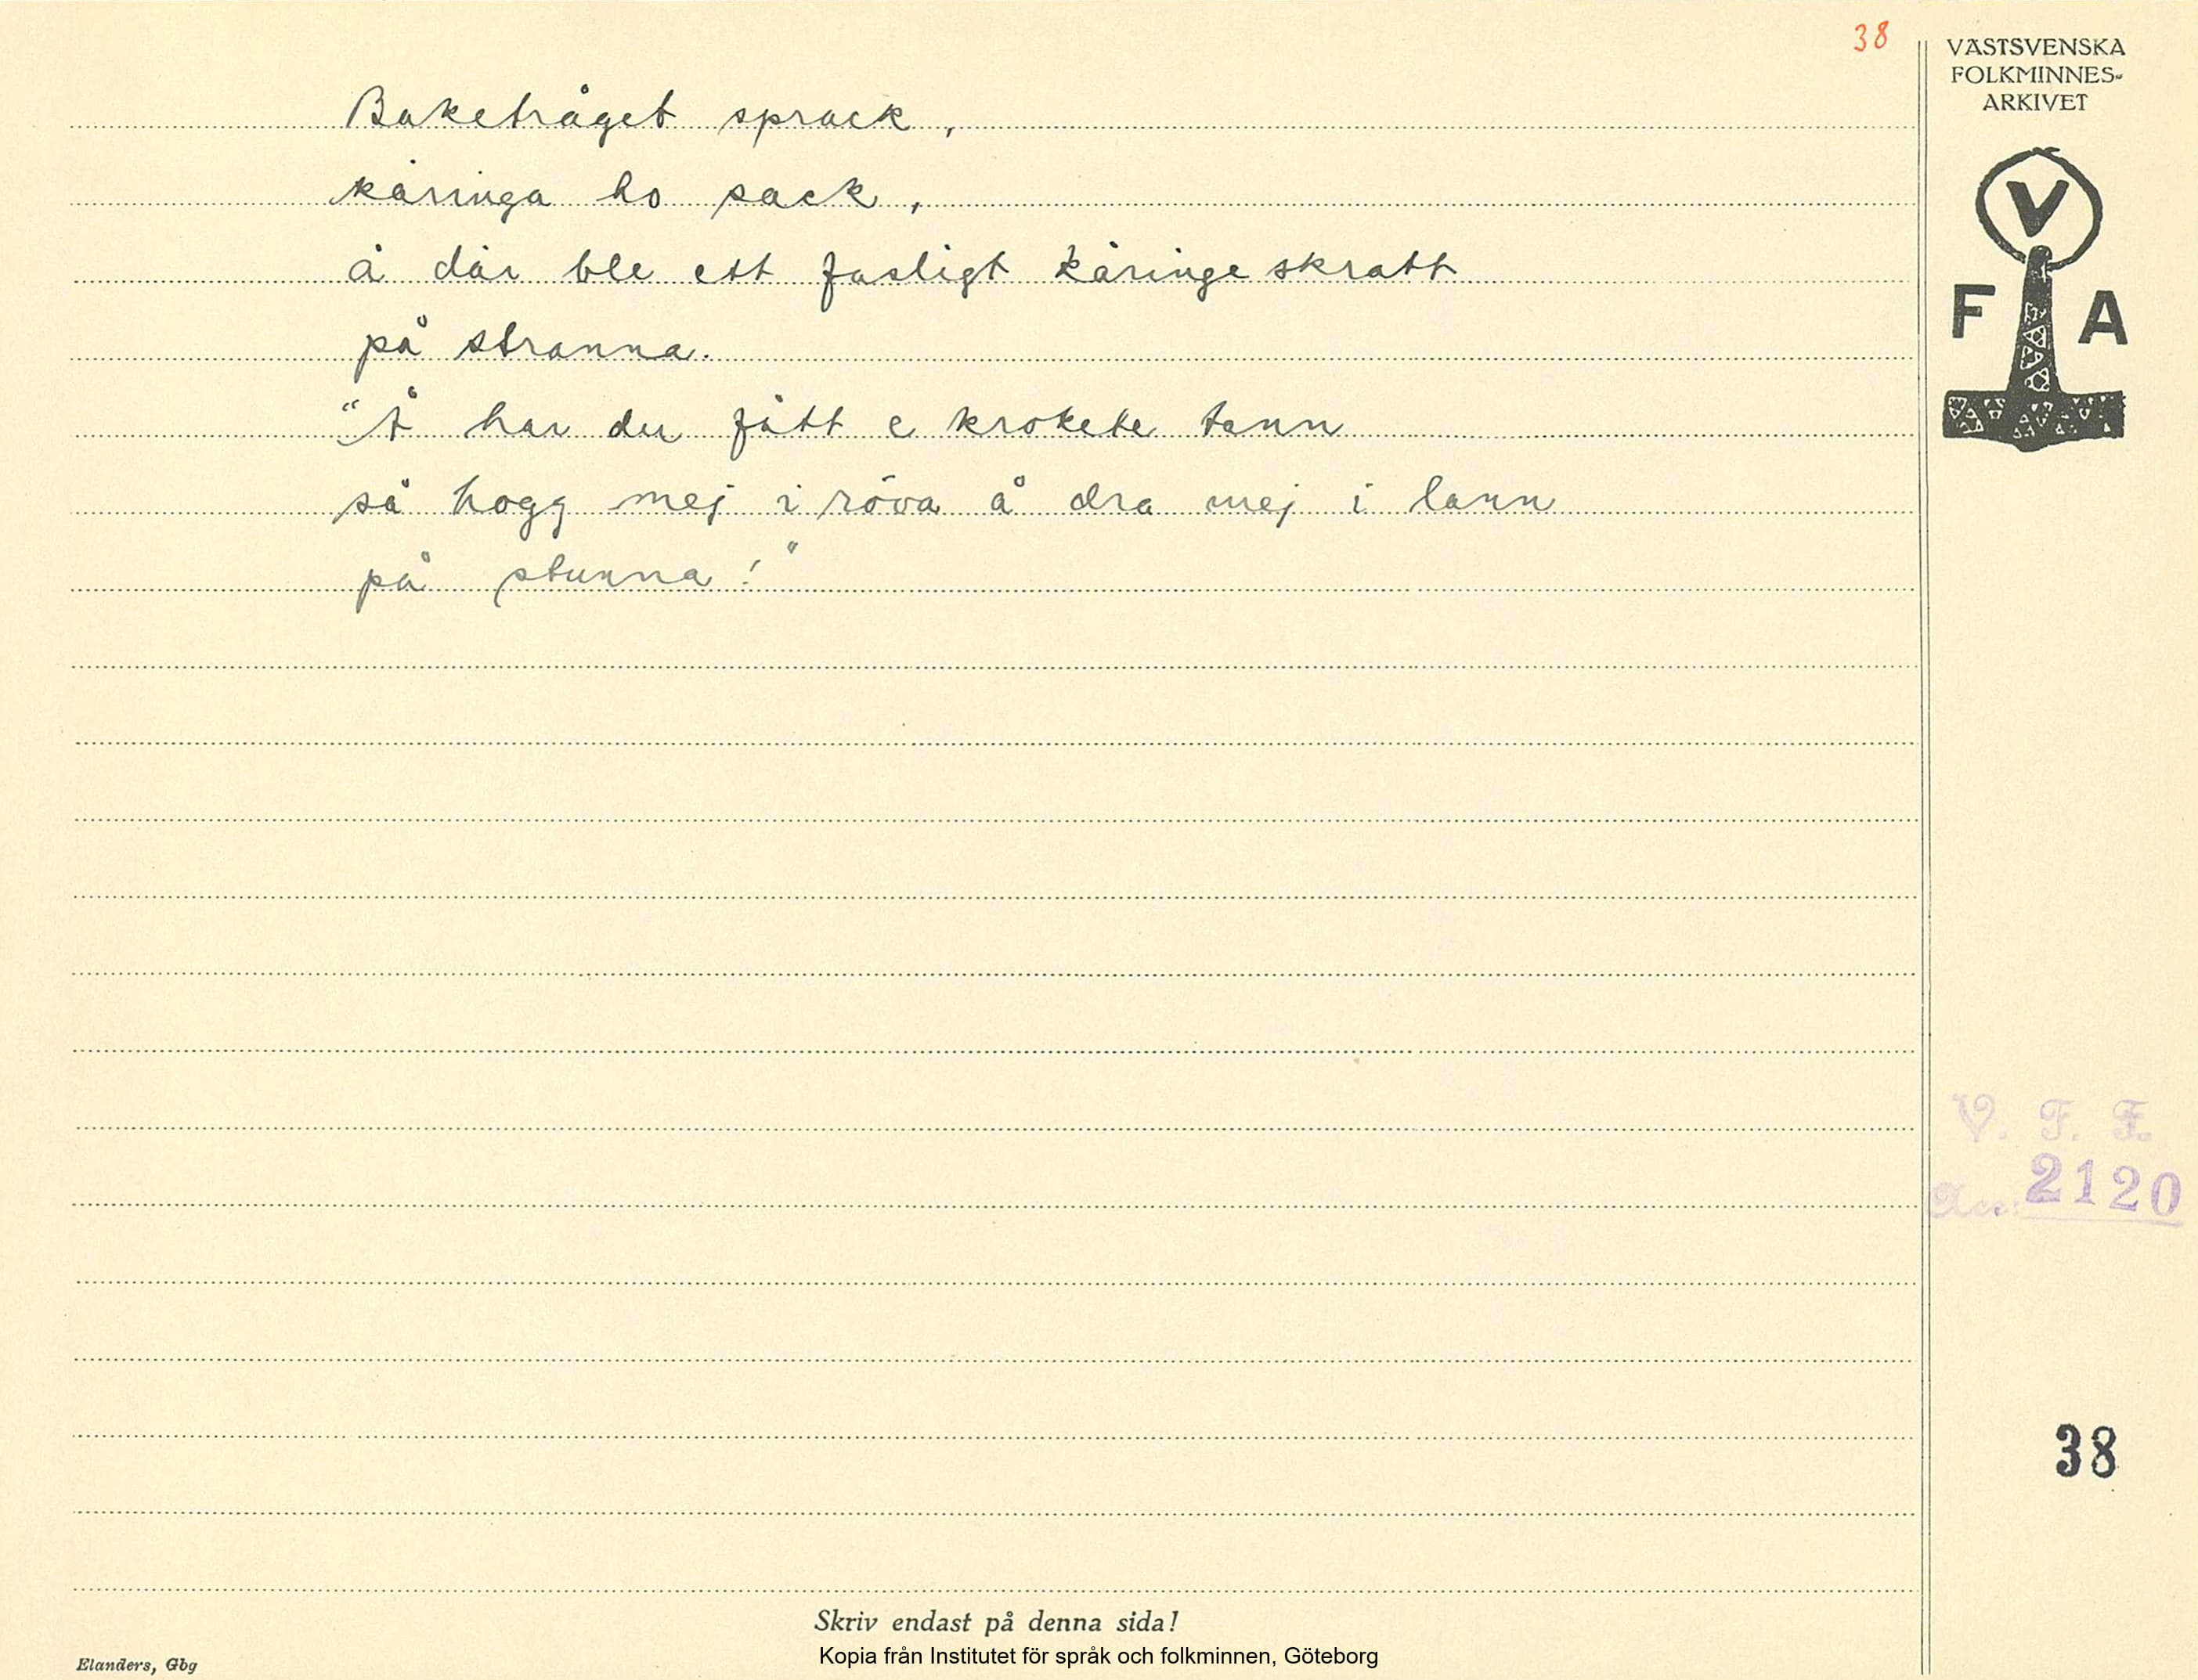 38
VÄSTSVENSKA
FOLKMINNES-
ARKIVET
V
F A
Baketråget sprack,
käringa ho sack,
å där ble ett fasligt käringeskratt
på stranna.
"Å har du fått e krokete tann
så hogg mej i röva å dra mej i lann
på stunna!"
V. F. F.
Acc: 2120
38
Skriv endast på denna sida!
Kopia från Institutet för språk och folkminnen, Göteborg
Elanders, Gbg